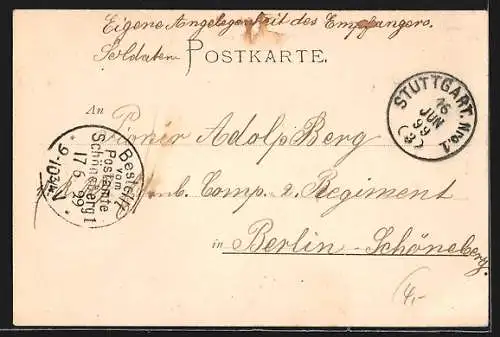 Eigene Angelegenheit des Empfängers.
Soldaten POSTKARTE.
STUTTGART. Nro. 1.
16
JUN
99
(3)
An
Pionier Adolf Berg
Bestellt
vom
Postamte
Schöneberg 1
17 6 99
9-10¾V
Comp. 2. Regiment
in Berlin-Schöneberg.
4,-